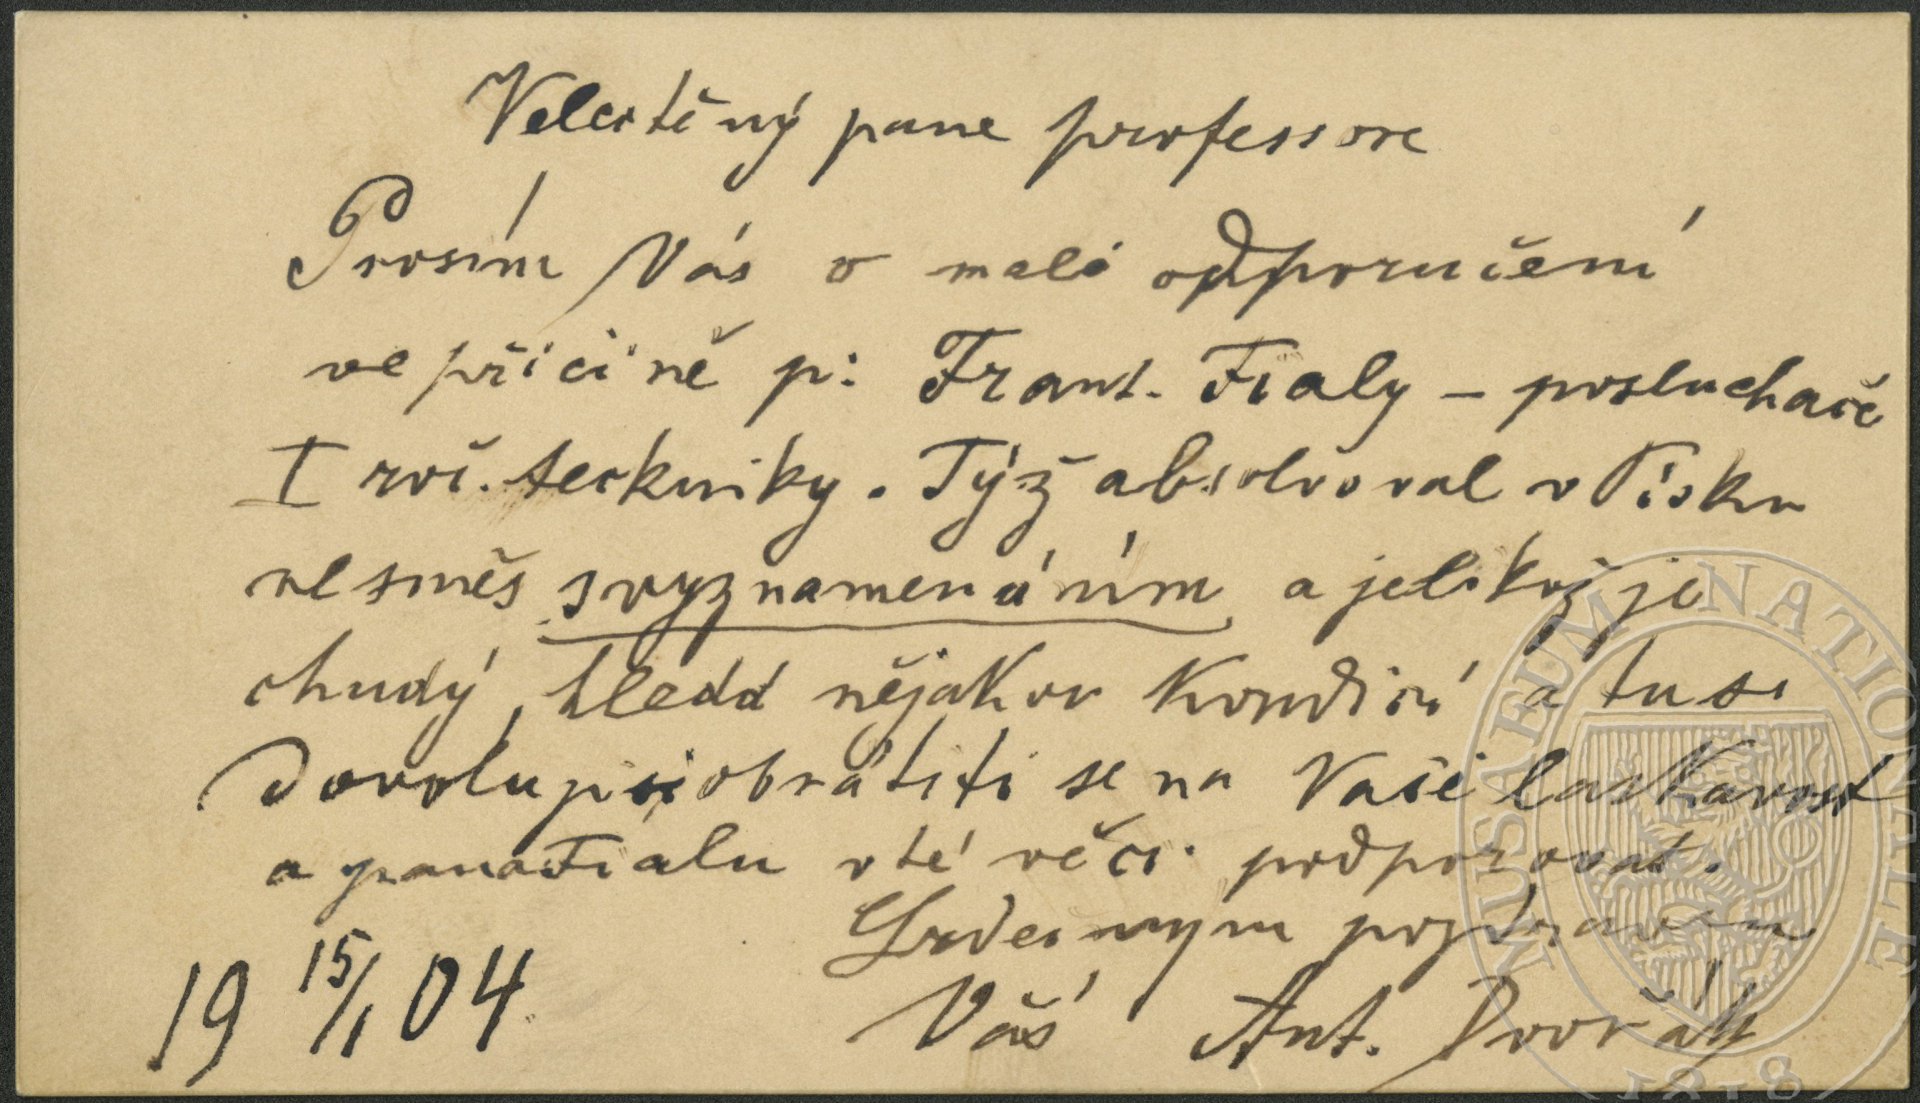 Velectěný pane professore
Prosím Vás o malé odporučení
ve příčině p: Frant. Fialy – posluchače
I roč. techniky. Týž absolvoval v Písku
vesměs s vyznamenáním a jelikož je
chudý, hledá nějakou kondici a tu si
dovoluji obrátiti se na Vaši laskavost
a pana Fialu v té věci podporovat.
Srdečným pozdravem
19 15/1 04 Váš Ant. Dvořák
MUSAEUM NATIONALE
1818